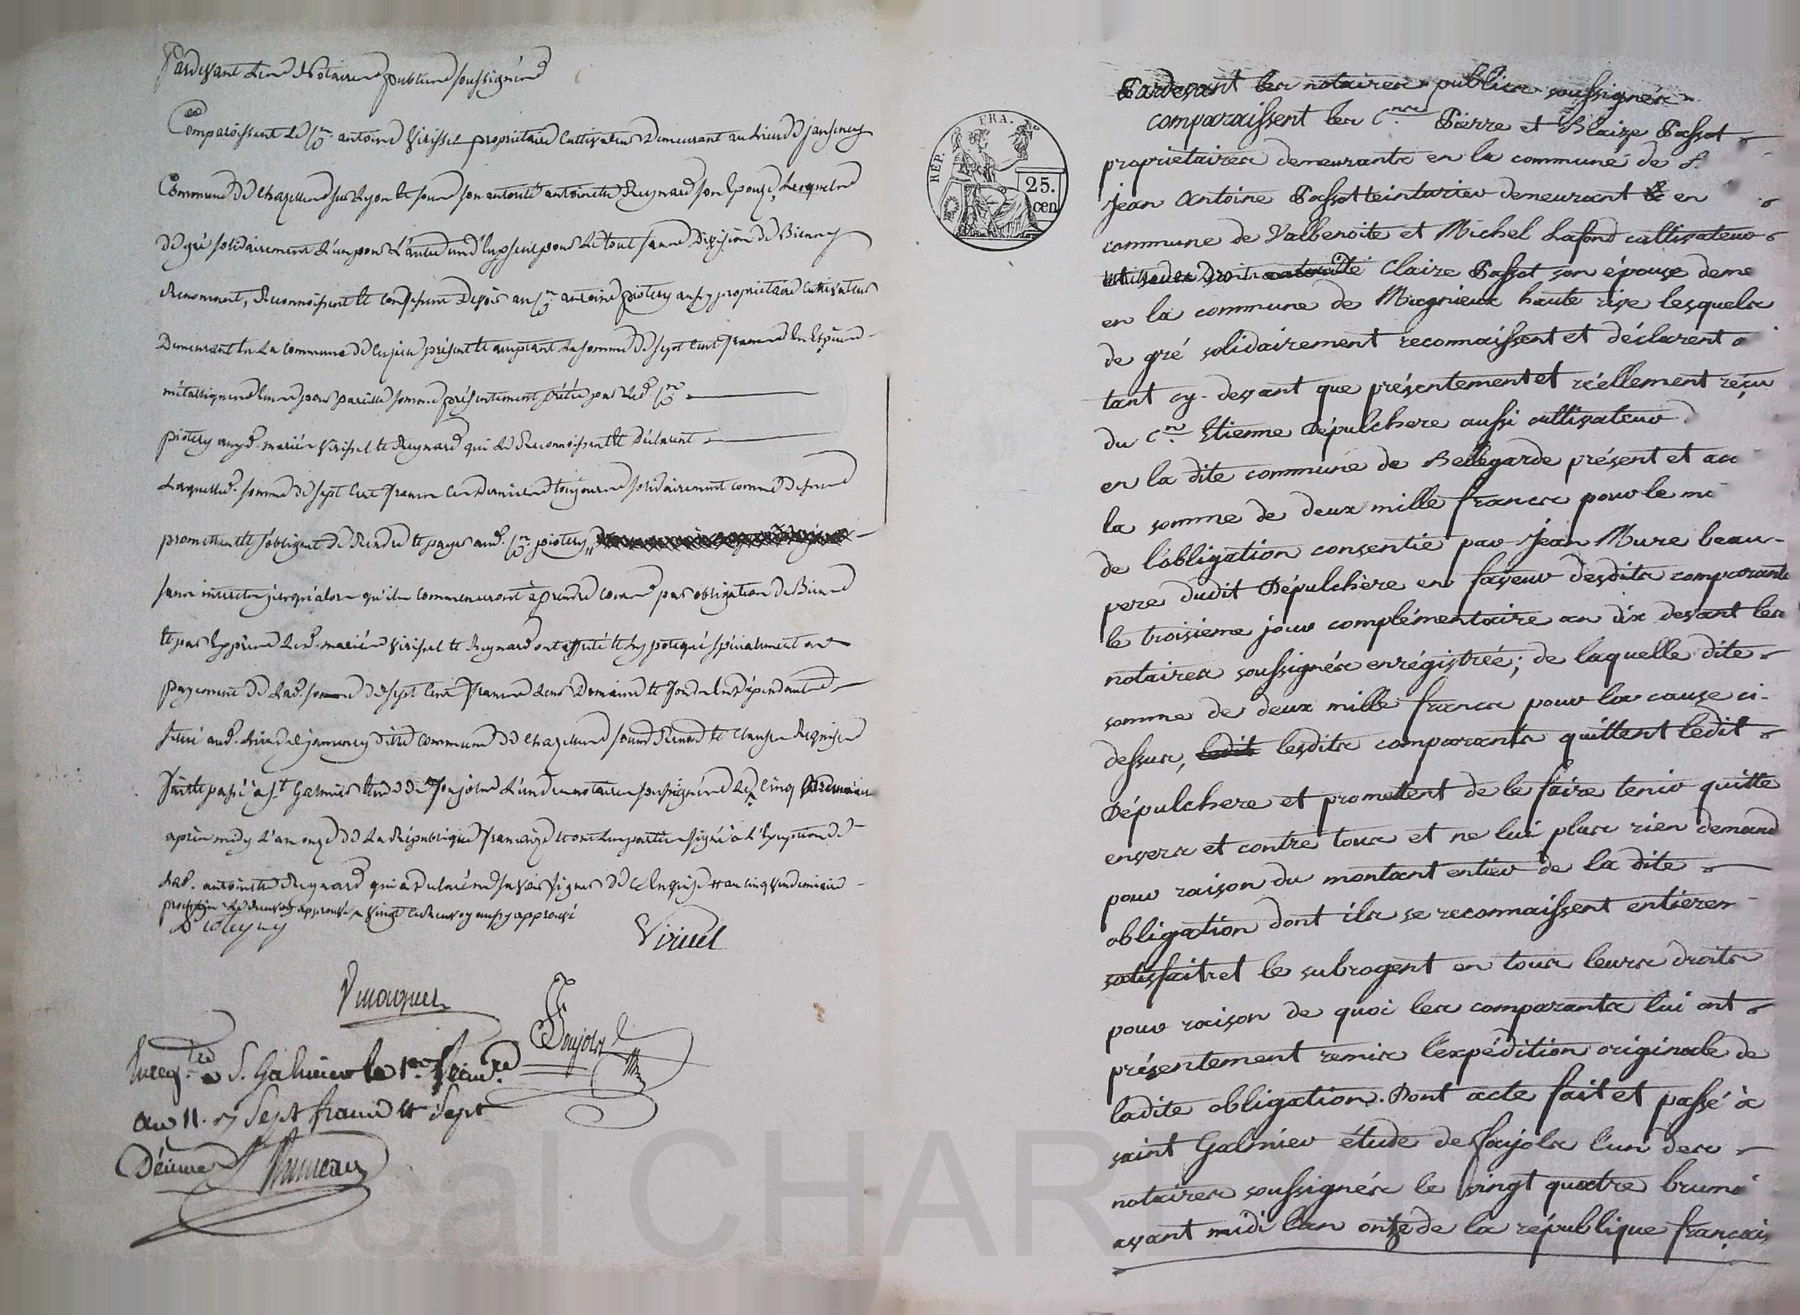 Pardevant les Notaires publics soussignés
Comparoissent le Cn antoine Virissel propriétaire Cultivateur Demeurant au lieu de
Commune de Chazelles sur Lyon et sous son autorité antoinette Reynard son épouse, Lesquels
de gré solidairement l'un pour l'autre un d'eux seul pour le tout sans Division de Biens
Reconnoissent et Confessent Devoir au Cn antoine aussy propriétaire Cultivateur
Demeurant en La Commune de présent et acceptant La somme de sept Cent francs En Espèces
métalliques pour pareille somme présentement prêtée par led. Cn
mariés Virissel et Reynard qui Le Reconnoissent et Déclarent
Laquelle somme de sept Cent francs Ces Derniers toujours solidairement comme dessus
promettent et s'obligent de Rendre et payer aud. Cn
sans intérêts jusqu'alors qu'ils Commenceront à prendre cours par obligation de Biens
et par Exprès Lesd. mariés Virissel et Reynard ont affecté et hypotéqué spécialement au
payement de Lad. somme de sept Cent francs Leur Domaine et fonds En dépendants
situé aud. lieu de ditte Commune de Chazelles sous Renon et Clauses Requises
fait et passé à St Galmier Etude de Soujols L'un des notaires soussignés Le cinq
après midy L'an onze de La République française et ont Les parties signé à L'Exception de
Lad. antoinette Reynard qui a Déclaré ne savoir signer de ce Enquise
approuvé vingt et Renvoy aussy approuvé
Virissel
Soujols
Enregtré à S. Galmier le 1er
an 11. R Sept francs et Sept
Décimes
REP. FRA. No
25. cen
Pardevant les notaires publics soussignés
comparaissent les Cns Pierre et Blaize Passot
propriétaires demeurants en la commune de S.
jean Antoine Passot teinturier demeurant en
commune de Valbenoite et Michel Lafond cultivateur
Claire Passot son épouse deme
en la commune de Magnieux haute rive lesquels
de gré solidairement reconnaissent et déclarent
tant cy-devant que présentement et réellement reçu
du Cn Etienne Dépulchere aussi cultivateur
en la dite commune de Bellegarde présent et ac
la somme de deux mille francs pour le mo
de l'obligation consentie par Jean Mure beau-
pere dudit Dépulchère en faveur desdits comparants
le troisieme jour complémentaire an dix devant les
notaires soussignés enrégistrée; de laquelle dite
somme de deux mille francs pour la cause ci-
dessus, ledit lesdits comparants quittent ledit
Dépulchere et promettent de le faire tenir quitte
envers et contre tous et ne lui plus rien demand
pour raison du montant entier de la dite
obligation dont ils se reconnaissent entierem
satisfait et le subrogent en tous leurs droits
pour raison de quoi les comparants lui ont
présentement remis l'expédition originale de
ladite obligation. Dont acte fait et passé à
saint Galmier étude de Soujols l'un des
notaires soussignés le vingt quatre brum
avant midi l'an onze de la république français